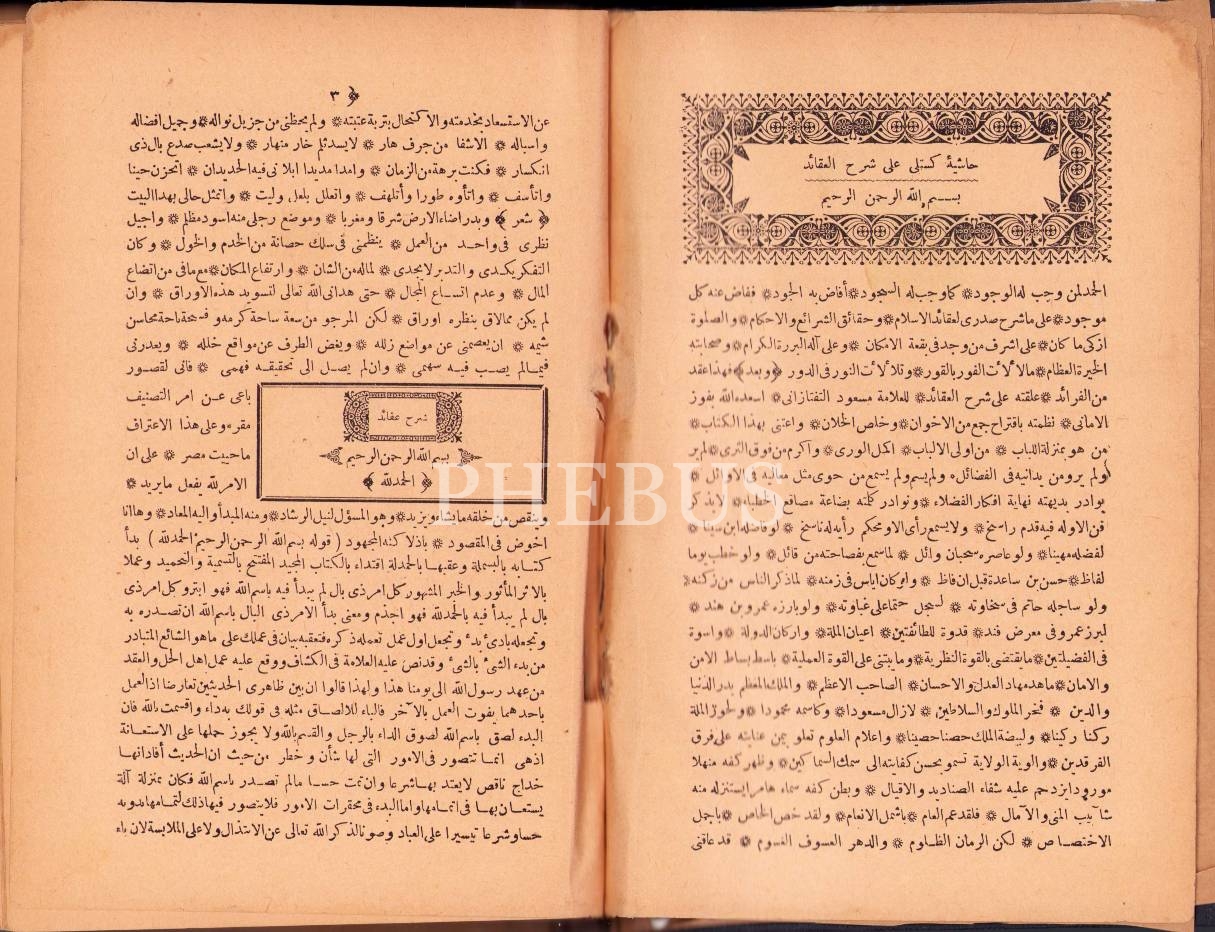 حاشیهٔ کستلی علی شرح العقائد
بسم الله الرحمن الرحیم
الحمد لمن وجب له الوجود * کما وجب له السجود * أفاض به الجود * ففاض عنه کل
موجود * علی ما شرح صدری لعقائد الاسلام * وحقائق الشرائع والاحکام * والصلوة
ازکی ما کان * علی اشرف من وجد فی بقعة الامکان * وعلی آله البررة الکرام * وصحابته
الخیرة العظام * مالألأت الفور بالقور * وتلألأت النور فی الدور * ﴿ وبعد ﴾ فهذا عقد
من الفرائد * علقته علی شرح العقائد * للعلامة مسعود التفتازانی * اسعده الله بفوز
الامانی * نظمته باقتراح جمع من الاخوان * وخلص الخلان * واعتنی بهذا الکتاب *
من هو بمنزلة اللباب * من اولی الالباب * اکمل الوری * واکرم من فوق الثری * لم یر
ولم یرو من یدانیه فی الفضائل * ولم یسم ولم یسمع من حوی مثل معالیه فی الاوائل *
بوادر بدیهته نهایة افکار الفضلاء * ونوادر کلمته بضاعة مصاقع الخطباء * لا یذکر
فن الا وله فیه قدم راسخ * ولا یسمع رأی الا ومحکم رأیه له ناسخ * لو فاضله ابن سینا *
لفضله مهینا * ولو عاصره سحبان وائل * لما سمع بفصاحته من قائل * ولو خطب یوما
لفاظ * حسن بن ساعدة قبل ان فاظ * ولو کان ایاس فی زمنه * لما ذکر الناس من زکنه *
ولو ساجله حاتم فی سخاوته * لسجل حتما علی غباوته * ولو بارزه عمرو بن هند *
لبرز عمرو فی معرض فند * قدوة للطائفتین * اعیان الملة * وارکان الدولة * واسوة
فی الفضیلتین * ما یقتضی بالقوة النظریة * وما یبتنی علی القوة العملیة * باسط بساط الامن
والامان * ماهد مهاد العدل والاحسان * الصاحب الاعظم * والملک المعظم بدر الدنیا
والدین * فخر الملوک والسلاطین * لا زال مسعودا * وکاسمه محمودا * ولحوز الملة
رکنا رکینا * ولبیضة الملک حصنا حصینا * واعلام العلوم تعلو بیمن عنایته علی فرق
الفرقدین * والویة الولایة تسمو بحسن کفایته الی سمک السماکین * وظهر کفه منهلا
مورودا یزدحم علیه شفاه الصنادید والاقیال * وبطن کفه سماء هامر ایستنزله منه
شآبیب المنی والآمال * فلقد عم العام * باشمل الانعام * ولقد خص الخاص * باجمل
الاختصاص * لکن الزمان الظلوم * والدهر العسوف الغشوم * قد عاقنی
﴿ ٣
عن الاستسعاد بخدمته والاکتحال بتربة عتبته * ولم یحظنی من جزیل نواله * وجمیل افضاله
واسباله * الا شفا من جرف هار * لا یسد ثلم خار منهار * ولا یشعب صدع بال ذی
انکسار * فکنت برهة من الزمان * وامدا مدیدا ابلانی فیه الجدیدان * اتحزن حینا
واتأسف * واتأوه طورا وأتلهف * واتعلل بلعل ولیت * واتمثل حالی بهذا البیت
﴿ شعر ﴾ وبدر اضاء الارض شرقا ومغربا * وموضع رجلی منه اسود مظلم * واجیل
نظری فی واحد من العمل * ینظمنی فی سلک حصانة من الخدم والخول * وکان
التفکر یکدی والتدبر لا یجدی * لما له من الشان * وارتفاع المکان * مع ما فی من اتضاع
المال * وعدم اتساع المجال * حتی هدانی الله تعالی لتسوید هذه الاوراق * وان
لم یکن مما لاق بنظره اوراق * لکن المرجو من سعة ساحة کرمه وفسحة باحة محاسن
شیمه * ان یعصمنی عن مواضع زلله * ویغض الطرف عن مواقع خلله * ویعذرنی
فیما لم یصب فیه سهمی * وان لم یصل الی تحقیقه فهمی * فانی لقصور
باعی عن امر التصنیف
مقر * وعلی هذا الاعتراف
ما حییت مصر * علی ان
الامر لله یفعل ما یرید *
شرح عقائد
بسم الله الرحمن الرحیم
﴿ الحمد لله ﴾
وینقص من خلقه ما یشاء ویزید * وهو المسؤل لنیل الرشاد * ومنه المبدأ والیه المعاد * وها انا
اخوض فی المقصود * باذلا کنه المجهود ( قوله بسم الله الرحمن الرحیم الحمد لله ) بدأ
کتابه بالبسملة وعقبها بالحمدلة اقتداء بالکتاب المجید المفتتح بالتسمیة والتحمید وعملا
بالاثر المأثور والخبر المشهور کل امر ذی بال لم یبدأ فیه باسم الله فهو ابتر وکل امر ذی
بال لم یبدأ فیه بالحمد لله فهو اجذم ومعنی بدأ الامر ذی البال باسم الله ان تصدره به
وتجعله بادئ بدء وتجعل اول عمل تعمله ذکره فتعقبه بیان فی عملک علی ما هو الشائع المتبادر
من بدء الشئ بالشئ وقد نص علیه العلامة فی الکشاف ووقع علیه عمل اهل الحل والعقد
من عهد رسول الله الی یومنا هذا ولهذا قالوا ان بین ظاهری الحدیثین تعارضا اذ العمل
باحدهما یفوت العمل بالآخر فالباء للالصاق مثله فی قولک به داء واقسمت بالله فان
البدء لصق باسم الله لصوق الداء بالرجل والقسم بالله ولا یجوز حملها علی الاستعانة
اذ هی انما تتصور فی الامور التی لها شأن وخطر من حیث ان الحدیث أفاد انها
خداج ناقص لا یعتد بها شرعا وان تمت حسا ما لم تصدر باسم الله فکان بمنزلة آلة
یستعان بها فی اتمامها واما البدء فی محقرات الامور فلا یتصور فیها ذلک لتمامها بدونه
حسا وشرعا تیسیرا علی العباد وصونا لذکر الله تعالی عن الابتذال ولا علی الملابسة لان باء
PHEBUS